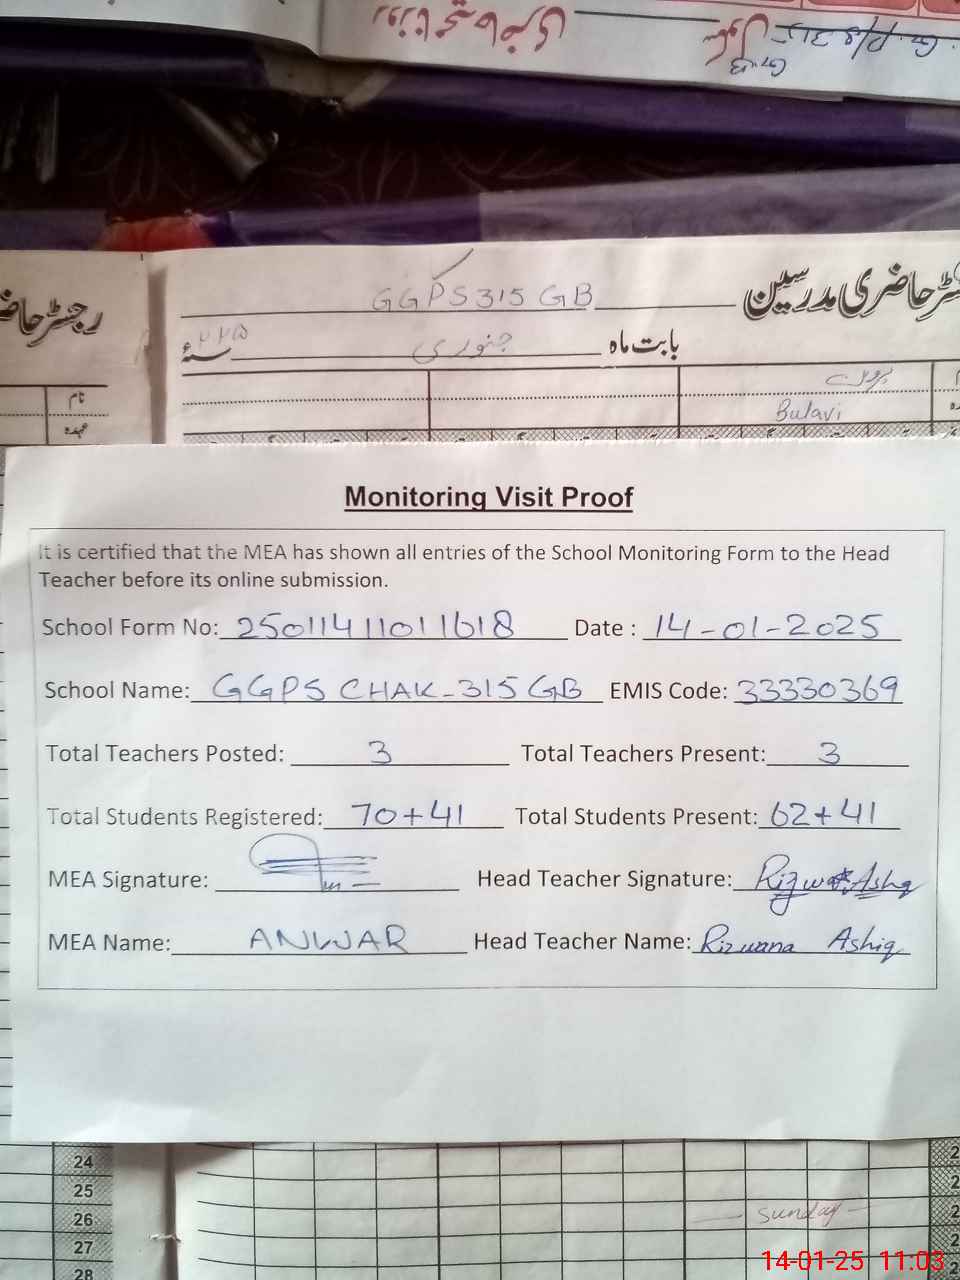 GGPS 315 GB رجسٹر حاضری مدرسین
بابت ماہ جنوری ۲۰۲۵ سنۂ
نام
عہدہ
Bulavi
Monitoring Visit Proof
It is certified that the MEA has shown all entries of the School Monitoring Form to the Head
Teacher before its online submission.
School Form No: 25011411011618 Date : 14-01-2025
School Name: GGPS CHAK-315 GB EMIS Code: 33330369
Total Teachers Posted: 3 Total Teachers Present: 3
Total Students Registered: 70+41 Total Students Present: 62+41
MEA Signature: Head Teacher Signature: Rizwana Ashiq
MEA Name: ANWAR Head Teacher Name: Rizwana Ashiq
24
25
26 Sunday
27
28
14-01-25 11:03